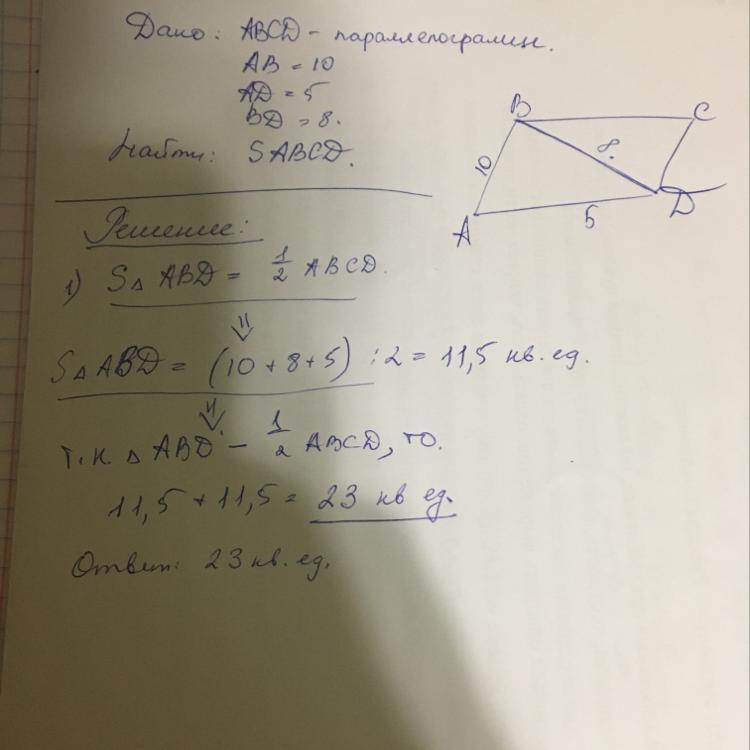 Дано: ABCD - параллелограмм.
AB = 10
AD = 5
BD = 8.
Найти: SABCD.
B
C
10
8.
A
5
D
Решение:
1) S△ ABD = 1/2 ABCD.
⇓
S△ ABD = (10 + 8 + 5) : 2 = 11,5 кв. ед.
⇓
т.к. △ ABD - 1/2 ABCD, то.
11,5 + 11,5 = 23 кв ед.
Ответ: 23 кв. ед.